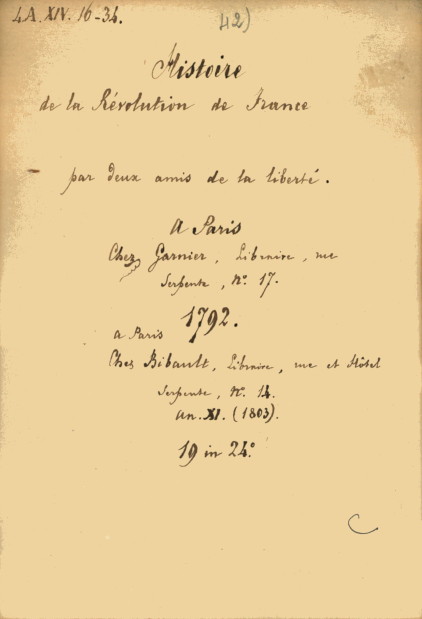 4A. XIV. 16-34.
42)
Histoire
de la Révolution de France
par deux amis de la liberté.
A Paris
Chez Garnier, Libraire, rue
Serpente, No. 17.
1792.
a Paris
Chez Bibault, Libraire, rue et Hôtel
Serpente, No. 14.
an. XI. (1803).
19 in 24.o
C